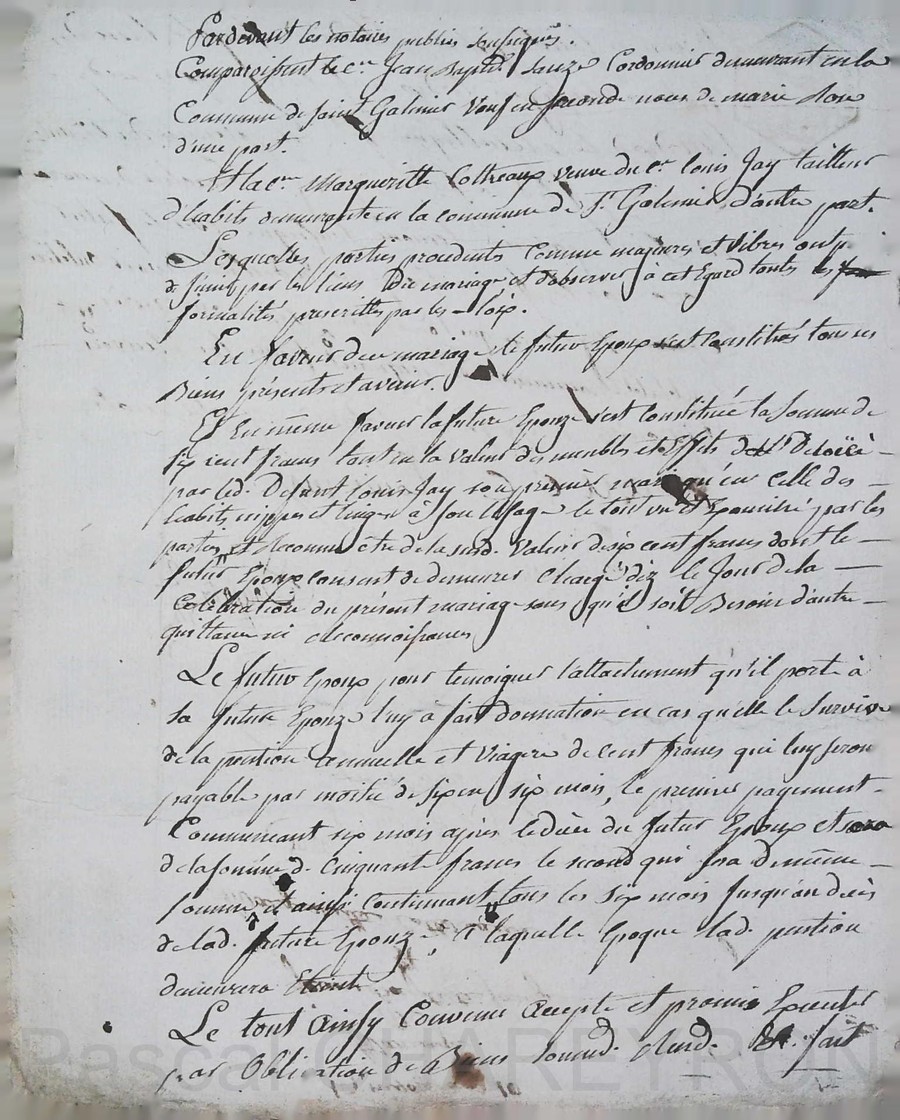 Pardevant les notaires publics soussignés.
Comparoissent le cen Jean Baptte Sauze Cordonnier demeurant en la
Commune de Saint Galmier veuf en seconde noces de marie
d'une part.
Et la cne Margueritte veuve du cen louis Jay tailleur
d'habits demeurante en la commune de St Galmier d'autre part.
Lesquelles parties procedents Comme majeures et libres ont p
de s'unir par les liens Du mariage et d'observer à cet Egard touts les
formalités prescrittes par les loix.
En faveur du mariage le futur Epoux s'est Constitués tous ses
Biens présents et avenir.
Et En même faveur la future Epouze s'est Constituée la Somme de
Six cent francs tant en la valeur des meubles et Effets
par led. Defunt Louis Jay son premier mari qu'en celle des
habits nippes et linges à son Usage le tout vu et par les
parties et Reconnu être de la susd. Valeur de six cent francs dont le
futur Epoux consent de demeurer chargé dez le Jour de la
Celebration du présent mariage sans qu'il soit Besoin d'autre
quittance ni Reconnoissances
Le futur Epoux pour temoigner l'attachement qu'il porte à
sa future Epouze luy à fait donnation en cas qu'elle le Survive
de la pention annuelle et Viagere de Cent francs qui luy seron
payable par moitié de six en six mois, le premier payement
Commencant six mois après le décès du futur Epoux et sera
de la somme de Cinquante francs le second qui sera de même
somme et ainsi Continuant tous les six mois Jusqu'au décès
de lad. future Epouze à laquelle Epoque lad. pention
demeurera Eteinte
Le tout Ainsy Convenu accepté et promis Executer
par Obligation de Biens soumd. Fait
Pascal CHAREYRON